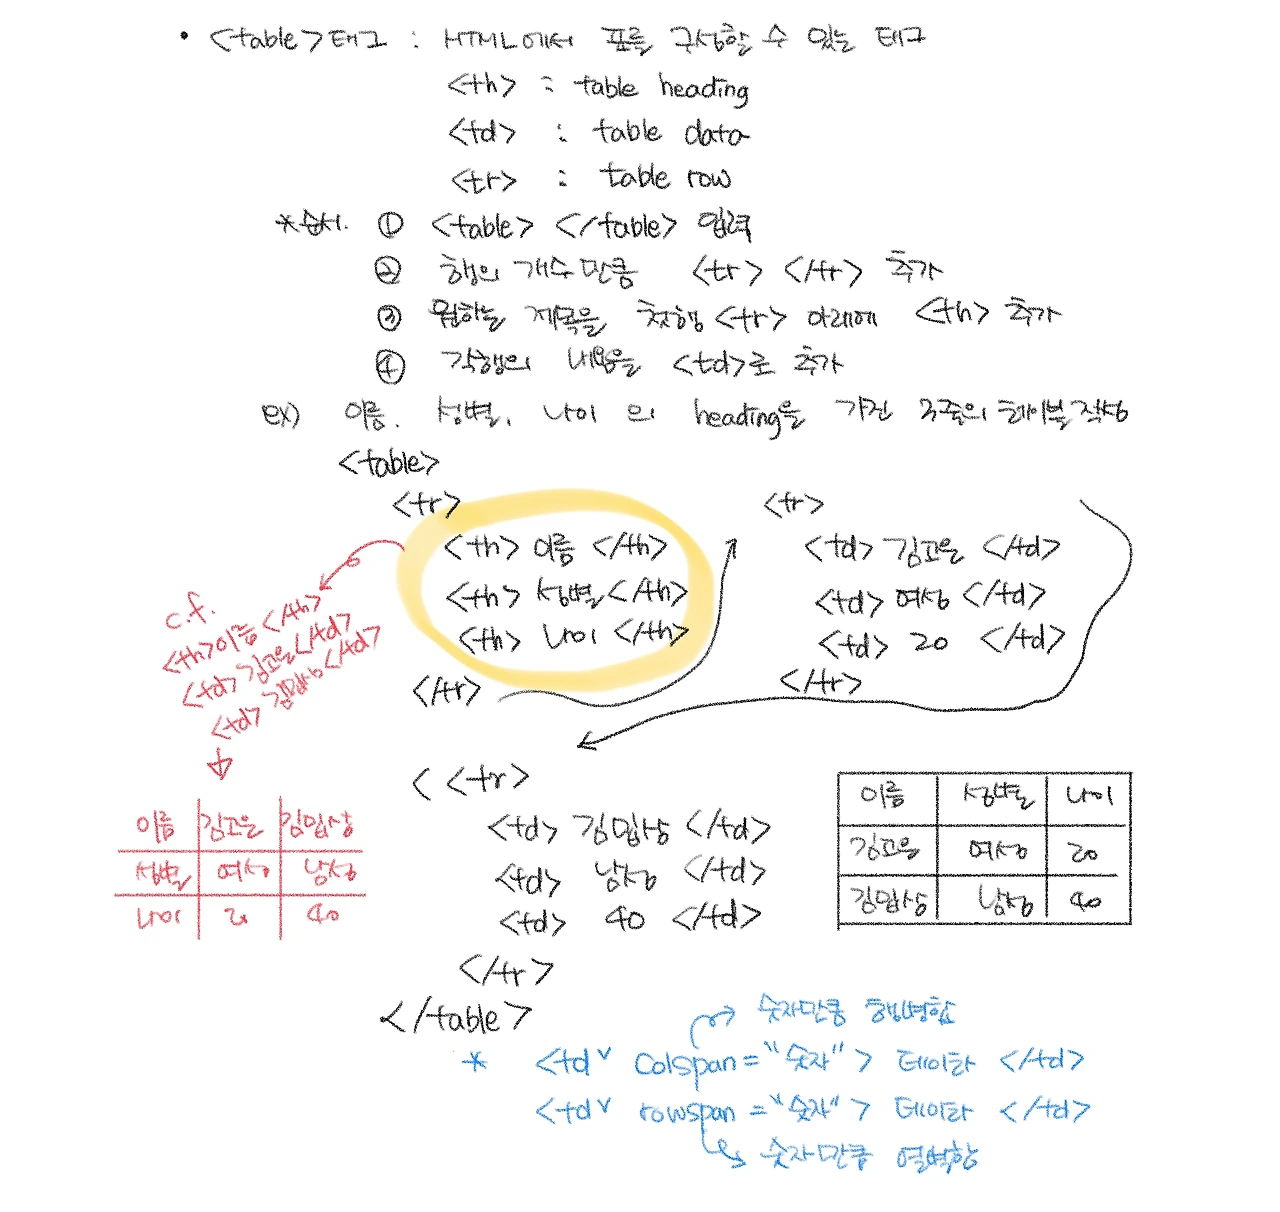 • <table>태그 : HTML에서 표를 구성할 수 있는 태그
<th> : table heading
<td> : table data
<tr> : table row
*순서. ① <table> </table> 입력
② 행의 개수만큼 <tr> </tr> 추가
③ 원하는 제목을 첫행 <tr> 아래에 <th> 추가
④ 각행의 내용을 <td>로 추가
ex) 이름. 성별, 나이 의 heading을 가진 3줄의 테이블 작성
<table>
<tr>
<th> 이름 </th>
<th> 성별 </th>
<th> 나이 </th>
</tr>
<tr>
<td> 김고운 </td>
<td> 여성 </td>
<td> 20 </td>
</tr>
c.f.
<th>이름</th>
<td>김고운</td>
<td>김밉상</td>
이름 김고운 김밉상
성별 여성 남성
나이 20 40
< <tr>
<td> 김밉상 </td>
<td> 남성 </td>
<td> 40 </td>
</tr>
</table>
이름 성별 나이
김고운 여성 20
김밉상 남성 40
숫자만큼 행병합
* <td∨ colspan="숫자"> 데이타 </td>
<td∨ rowspan="숫자"> 데이타 </td>
숫자만큼 열병합